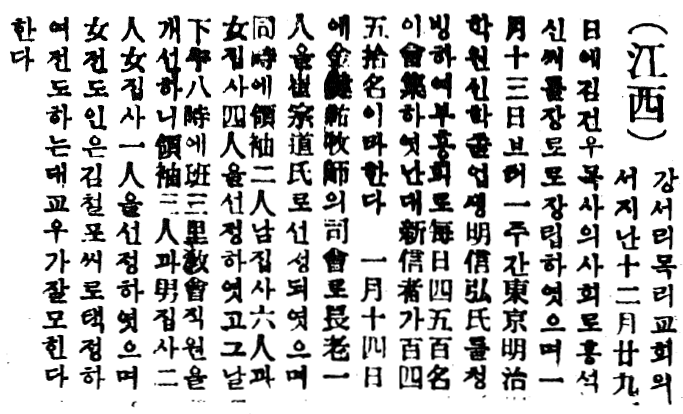 (江西)
강서리목리교회의
서지난十二月廿九
日에김건우목사의사회로홍석
신씨를장로로장립하엿으며一
月十三日브터一주간東京明治
학원신학졸업생明信弘氏를청
빙하여부흥회로每日四五百名
이會集하엿난대新信者가百四
五拾名이마한다 一月十四日
에金健祐牧師의司會로長老一
人을崔宗道氏로선성되엿으며
同時에領袖二人남집사六人과
女집사四人을선정하엿고그날
下午八時에班三里敎會직원을
개선하니領袖二人과男집사二
人女집사一人을선정하엿으며
女전도인은김철포씨로택정하
여전도하는대교우가잘모힌다
한다